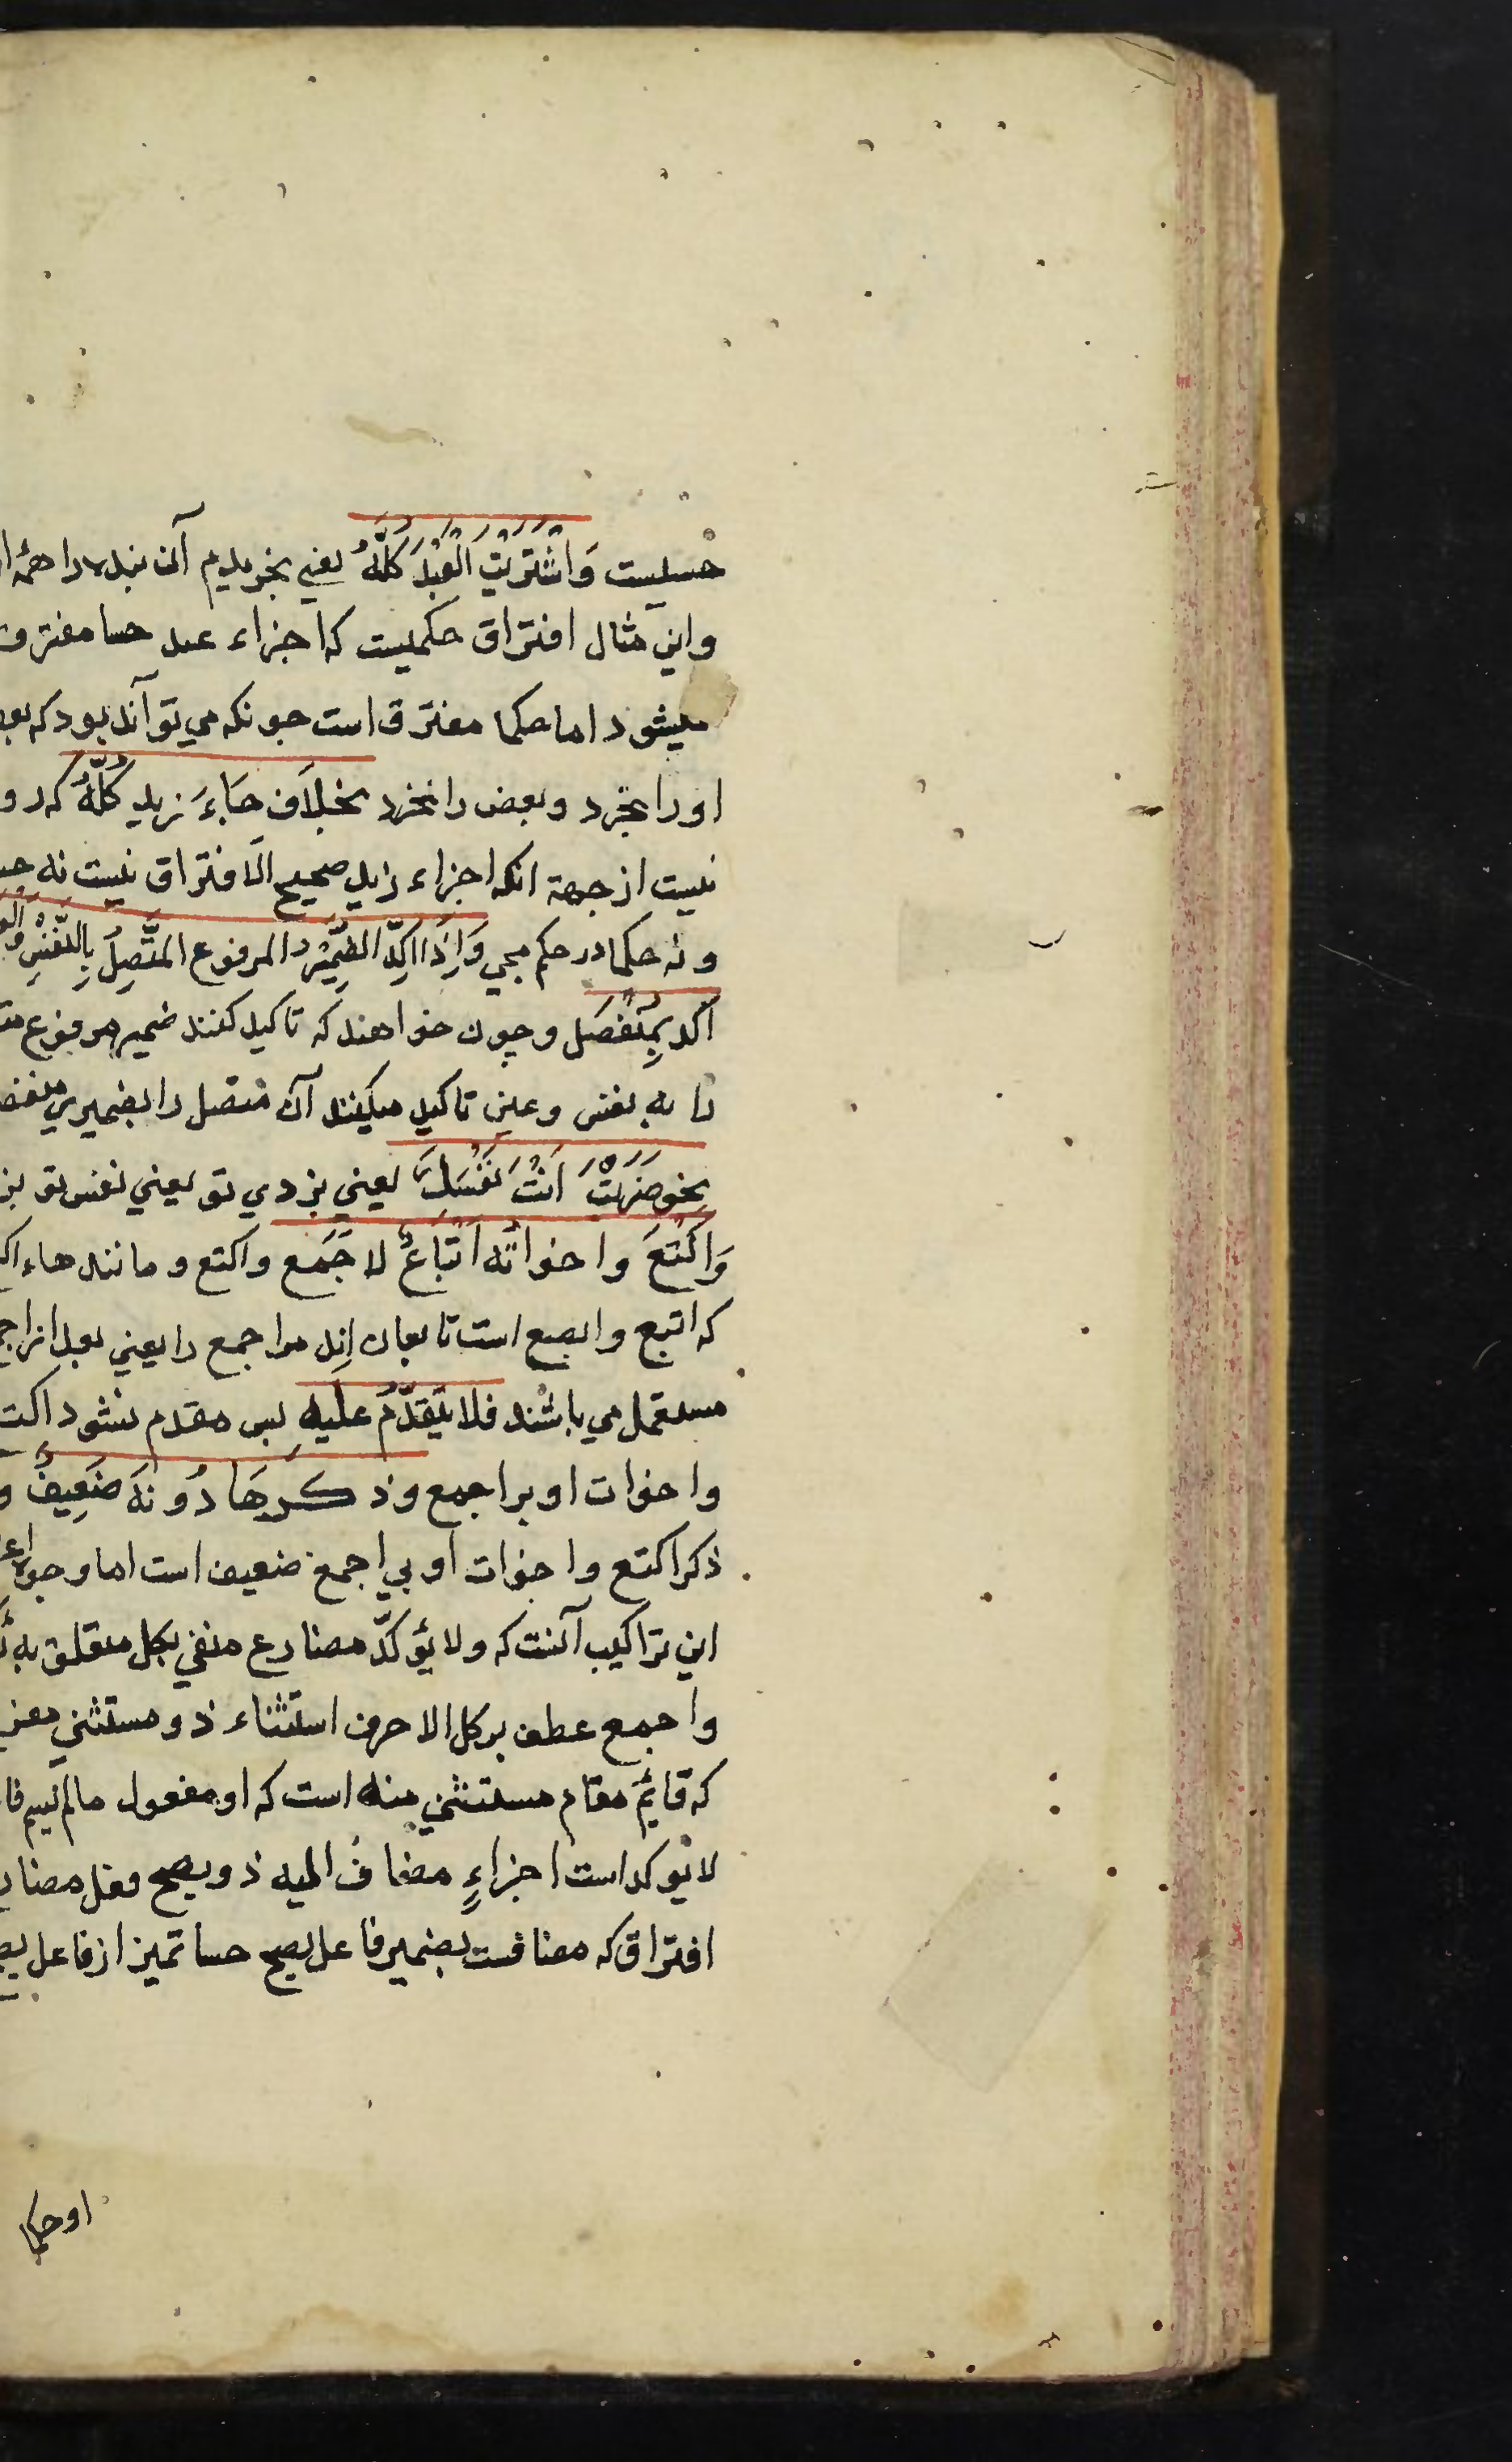 حسیست وَاشْتَرَیْتُ الْعَبْدَ كُلَّهُ یعنی بخریدم آن بنده را همه
واین مثال افتراق حکمیست که اجزاء عبد حسا مفترق
میشود اما حکما مفترق است جونکه می توآند بود که
اورا بخرد وبعض را نخرد بخِلَافِ جَاءَ زید كُلُّهُ که درو
نیست از جهة انکه اجزاء زید صحیح الافتراق نیست نه
ونه حکما در حکم مجی وَاِذَا اُكِّدَ الضَّمِیْرُ المرفوع المتَّصِلُ بِالنَّفْسِ
اُکد بِمُنْفَصَل وچون خواهند که تاکید کنند ضمیر مرفوع
را به نفس وعین تاکید میکنند آن متصل را بضمیری
نحو ضَرَبْتَ اَنْتَ نَفْسَكَ یعنی بزدی تو یعنی نفس تو
وَاَكْتَعَ واخواتُه اَتْبَاعٌ لاَجْمَع واکتع و مانند هاء
که اتبع وابصع است تابعان اند مر اجمع را یعنی بعد از
مستعمل می باشند فلا یَتَقَدَّمُ علَیهِ پس مقدم نشود
واخوات او بر اجمع وذكرهَا دُونَهُ ضَعِیفٌ و
ذکر اکتع واخوات او بی اجمع ضعیف است اما وجوه
این تراکیب آنست که ولا یؤکدّ مضارع منفی بکل متعلق به
واجمع عطف بر کل الا حرف استثناء ذو مستثنی
که قایم مقام مستثنی منه است که او مفعول مالم یسم
لا یوکد است اجزاءٍ مضاف الیه ذو یصح فعل
افتراق که مضافست بضمیر فاعل یصح حسا تمیز از فاعل
او حکما